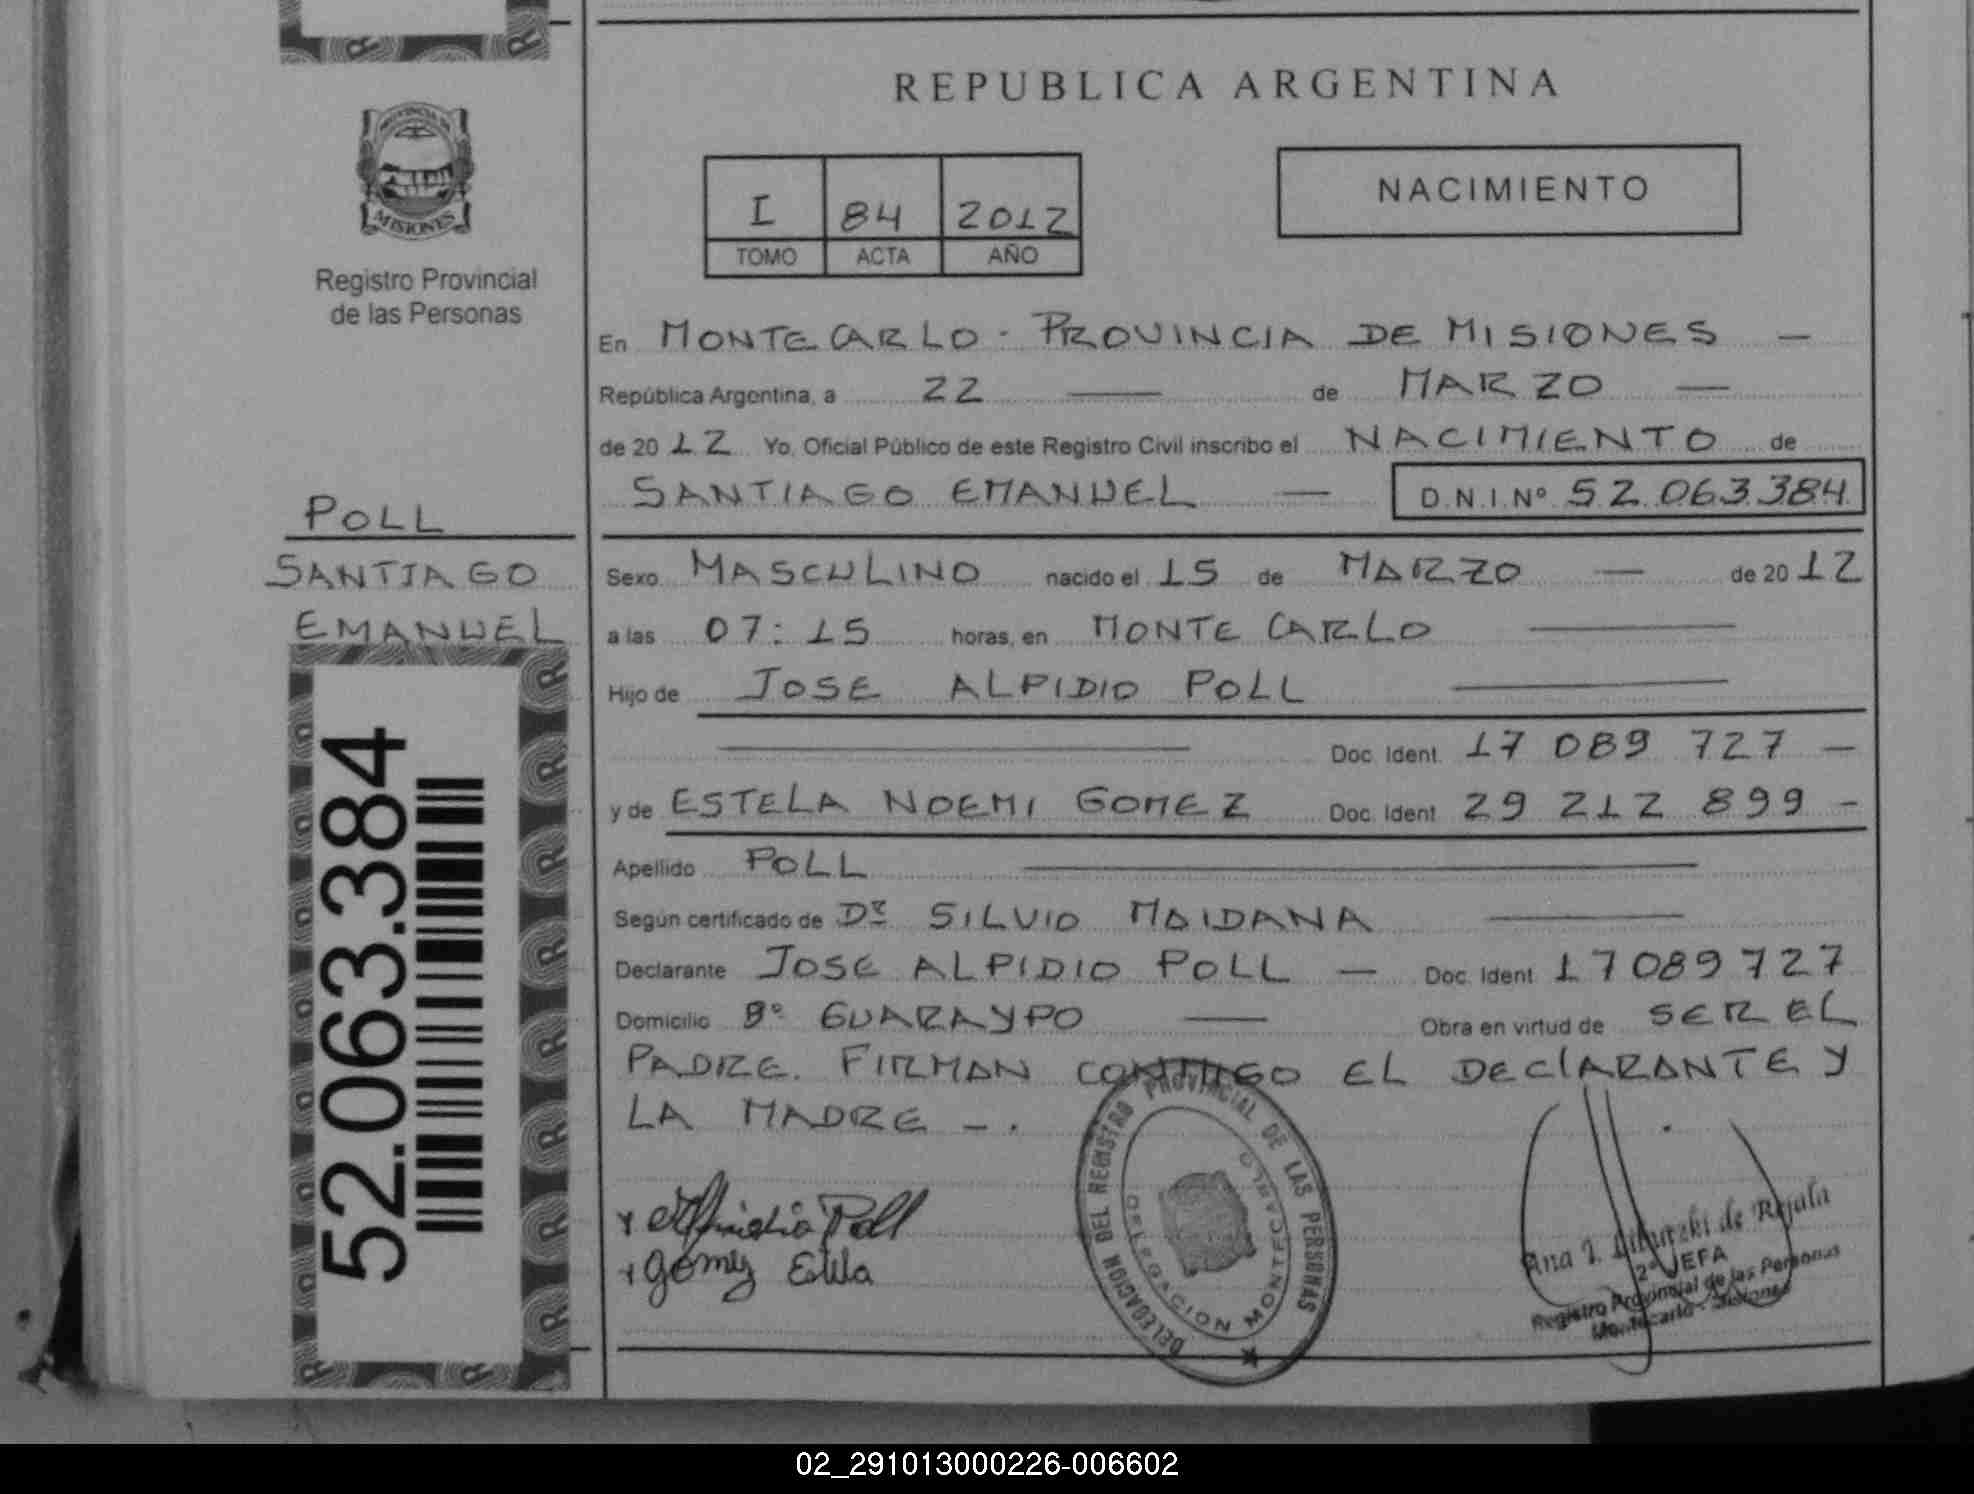 REPUBLICA ARGENTINA
PROVINCIA DE
MISIONES
Registro Provincial
de las Personas
I 84 2012
TOMO ACTA AÑO
NACIMIENTO
En MONTECARLO - PROVINCIA DE MISIONES —
República Argentina, a 22 — de MARZO —
de 2012 Yo, Oficial Público de este Registro Civil inscribo el NACIMIENTO de
SANTIAGO EMANUEL — D.N.I.Nº 52.063.384
POLL
SANTIAGO
EMANUEL
52.063.384
Sexo MASCULINO nacido el 15 de MARZO — de 2012
a las 07:15 horas, en MONTE CARLO —
Hijo de JOSE ALPIDIO POLL —
— Doc. Ident. 17 089 727 —
y de ESTELA NOEMI GOMEZ Doc. Ident. 29 212 899 -
Apellido POLL —
Según certificado de Dr SILVIO MAIDANA —
Declarante JOSE ALPIDIO POLL — Doc. Ident. 17089727
Domicilio Bº GUARAYPO — Obra en virtud de SER EL
PADRE. FIRMAN CONMIGO EL DEClARANTE Y
LA MADRE -.
Poll
Gomez Estela
DELEGACION DEL REGISTRO PROVINCIAL DE LAS PERSONAS
DELEGACION MONTECARLO
Ana I. de Rejala
2º JEFA
Registro Provincial de las Personas
Montecarlo - Misiones
02_291013000226-006602